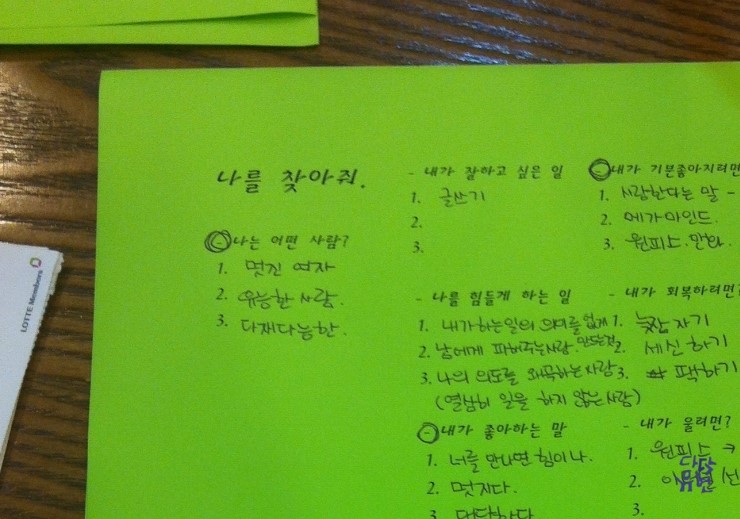 LOTTE Members
나를 찾아줘.
나는 어떤 사람?
1. 멋진 여자
2. 유능한 사람.
3. 다재다능한.
- 내가 잘하고 싶은 일
1. 글쓰기
2.
3.
- 나를 힘들게 하는 일
1. 내가 하는 일의 의미를 없게 만드는것
2. 남에게 피해주는사람.
3. 나의 의도를 왜곡하는 사람
(열심히 일을 하지 않는 사람)
내가 좋아하는 말
1. 너를 만나면 힘이나.
2. 멋지다.
3. 대단하다
내가 기분좋아지려면
1. 사랑한다는 말 -
2. 메가마인드.
3. 원피스. 만화.
- 내가 회복하려면?
1. 늦잠 자기
2. 세신 하기
3. 팩하기
- 내가 울려면?
1. 원피스
2.
3.